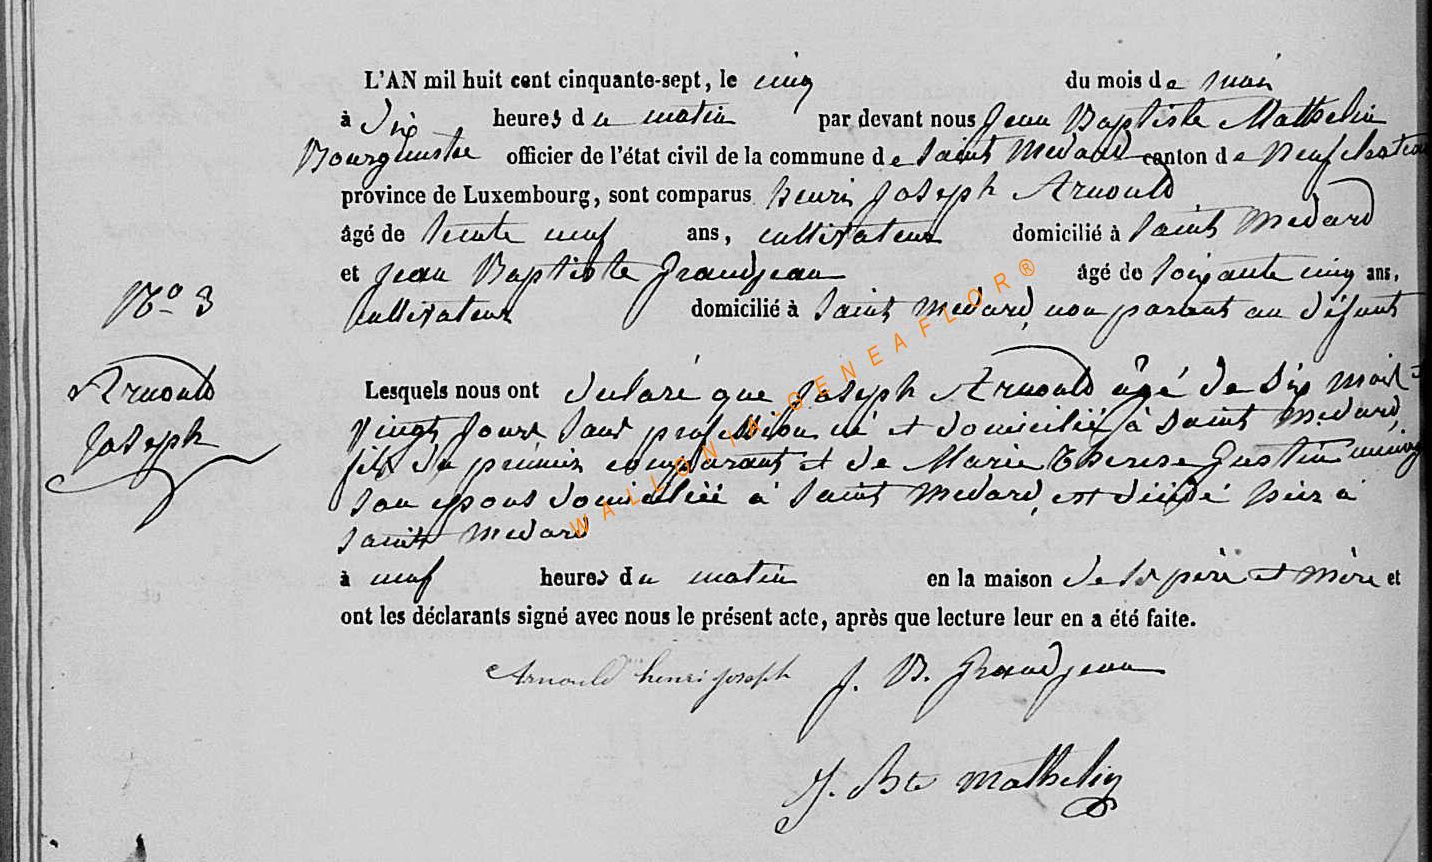 L'AN mil huit cent cinquante-sept, le cinq du mois de mai
à dix heures du matin par devant nous Jean Baptiste Mathelin
Bourgmestre officier de l'état civil de la commune de Saint Medard canton de Neufchateau
province de Luxembourg, sont comparus henri Joseph Arnould
âgé de trente neuf ans, cultivateur domicilié à Saint Medard
et Jean Baptiste Grandjean âgé de soixante cinq ans,
cultivateur domicilié à Saint Medard, non parent au défunt
N° 3
Arnould
Joseph
Lesquels nous ont declaré que Joseph Arnould âgé de six mois et
vingt jours sans profession né et domicilié à Saint Medard,
fils du premier comparant et de Marie Therese Gustin
son epouse domiciliée à Saint Medard, est décédé hier à
Saint Medard
à neuf heures du matin en la maison de ses père et mère et
ont les déclarants signé avec nous le présent acte, après que lecture leur en a été faite.
Arnould henri joseph J. B. Grandjean
J. Bte Mathelin
WALLONIA-GENEAFLOR®